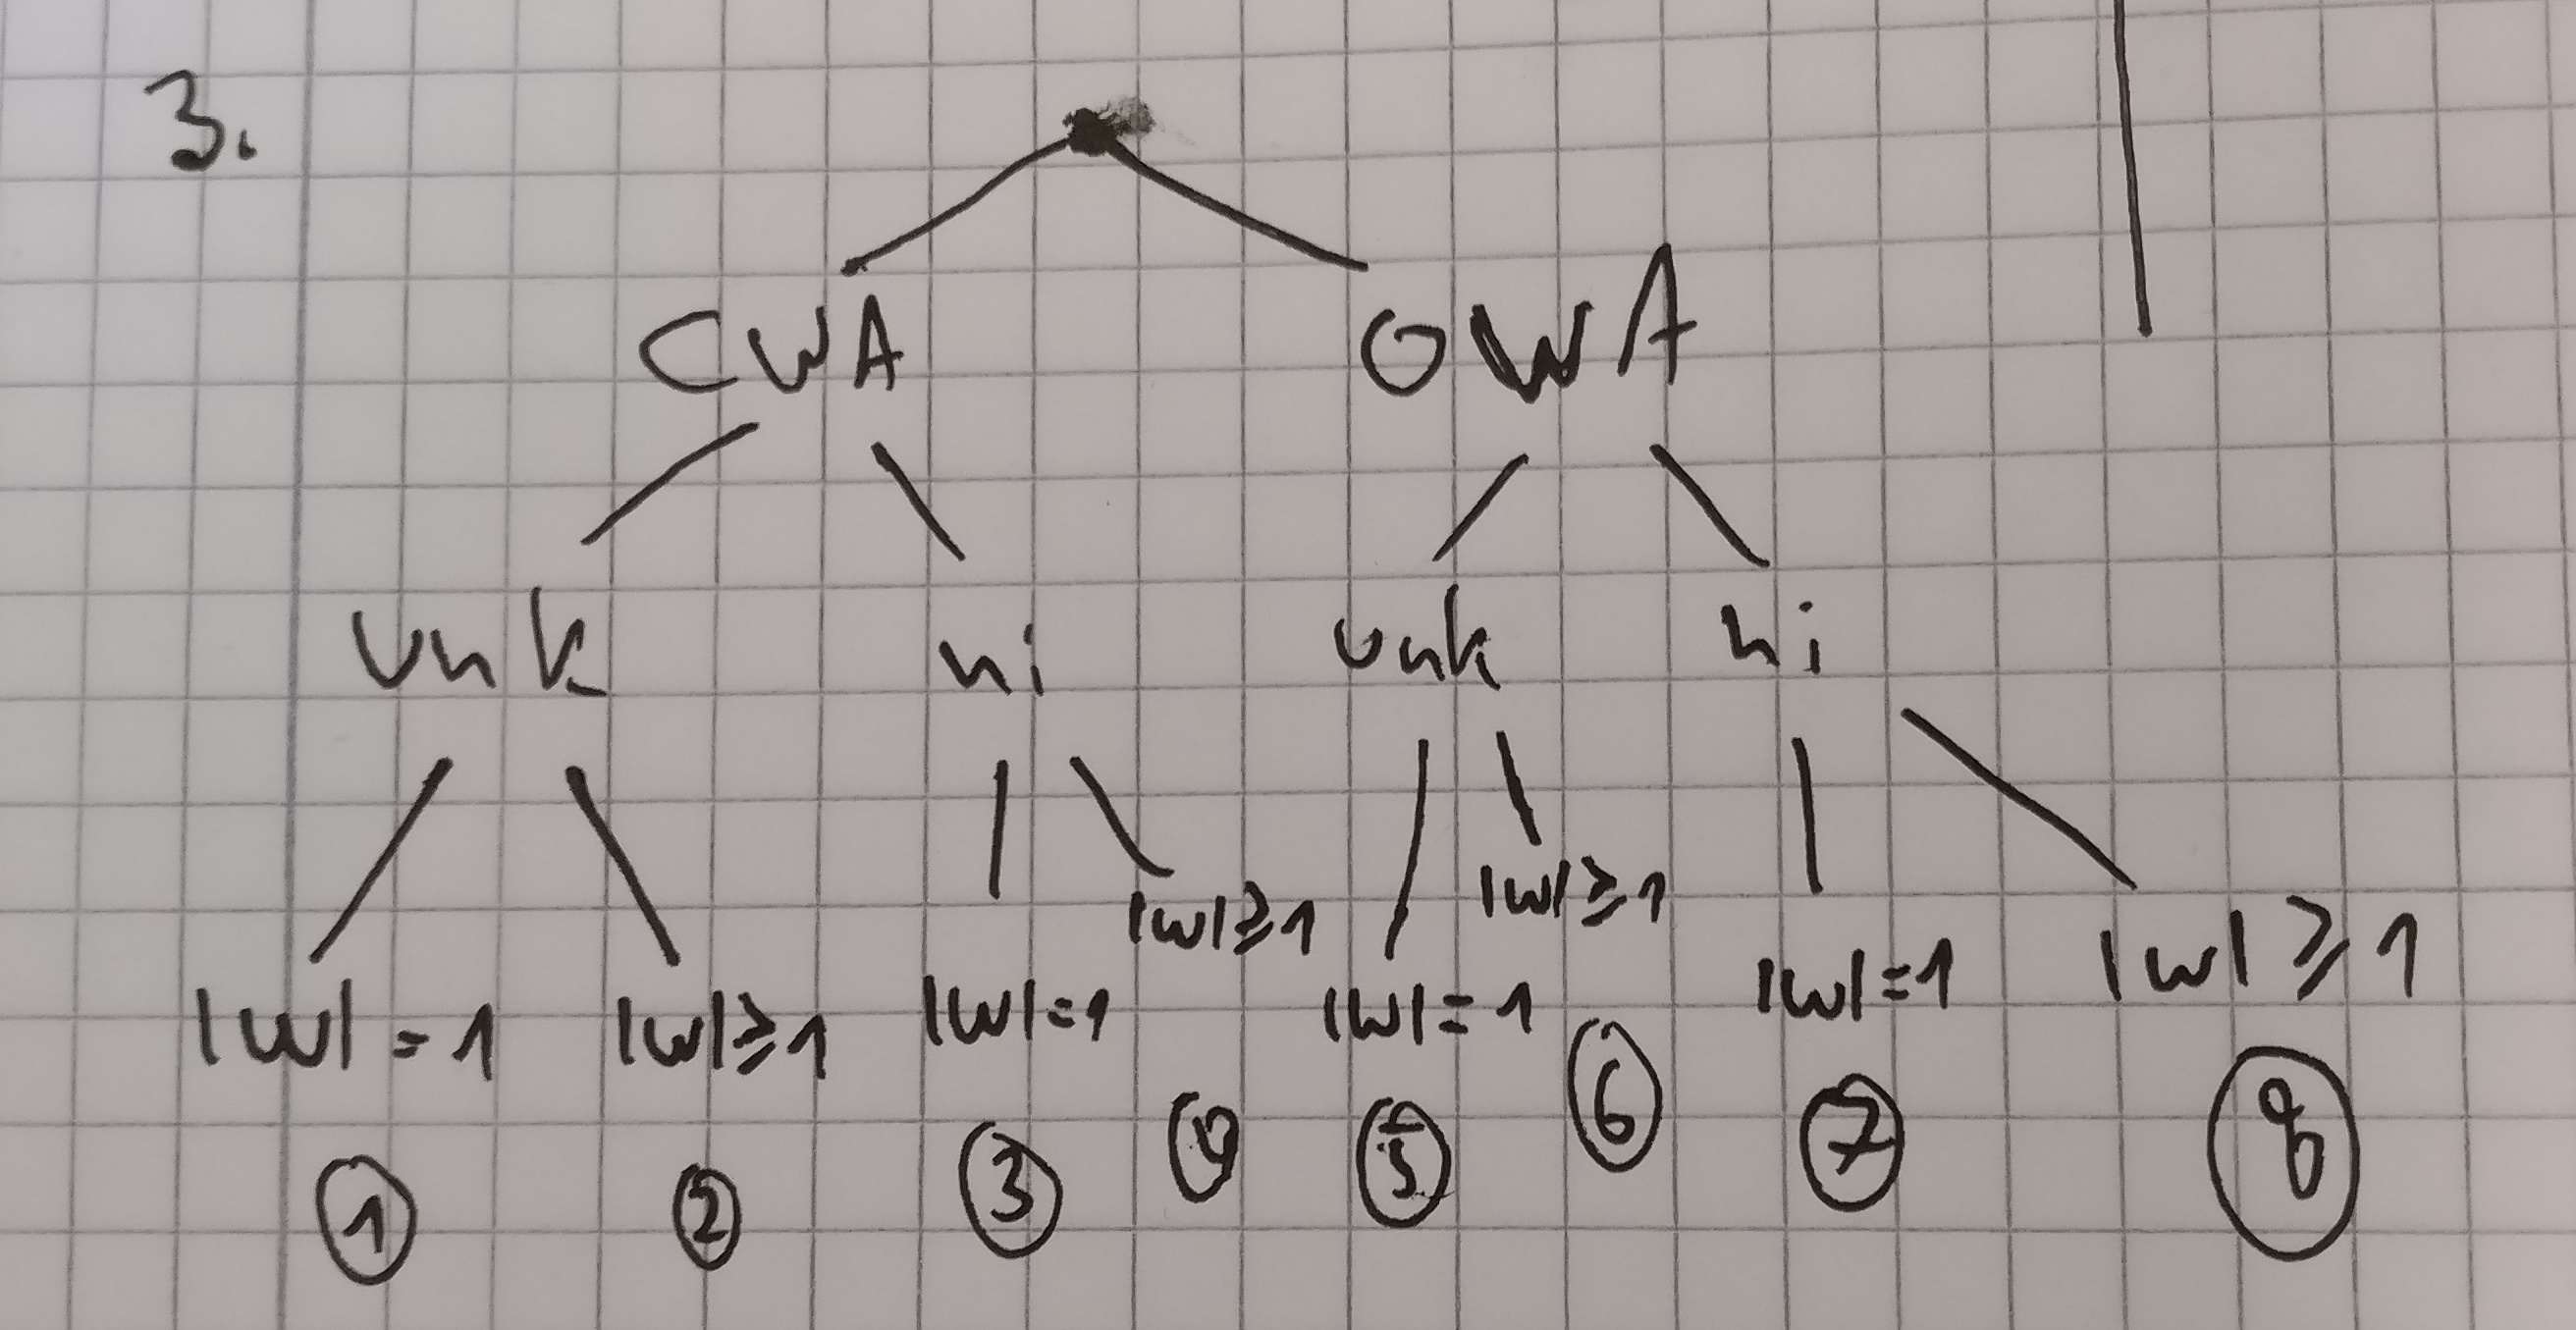 3.
CWA OWA
unk ni unk ni
|w|≥1 |w|≥1
|w|=1 |w|≥1 |w|=1 |w|=1 |w|=1 |w|≥1
1 2 3 4 5 6 7 8